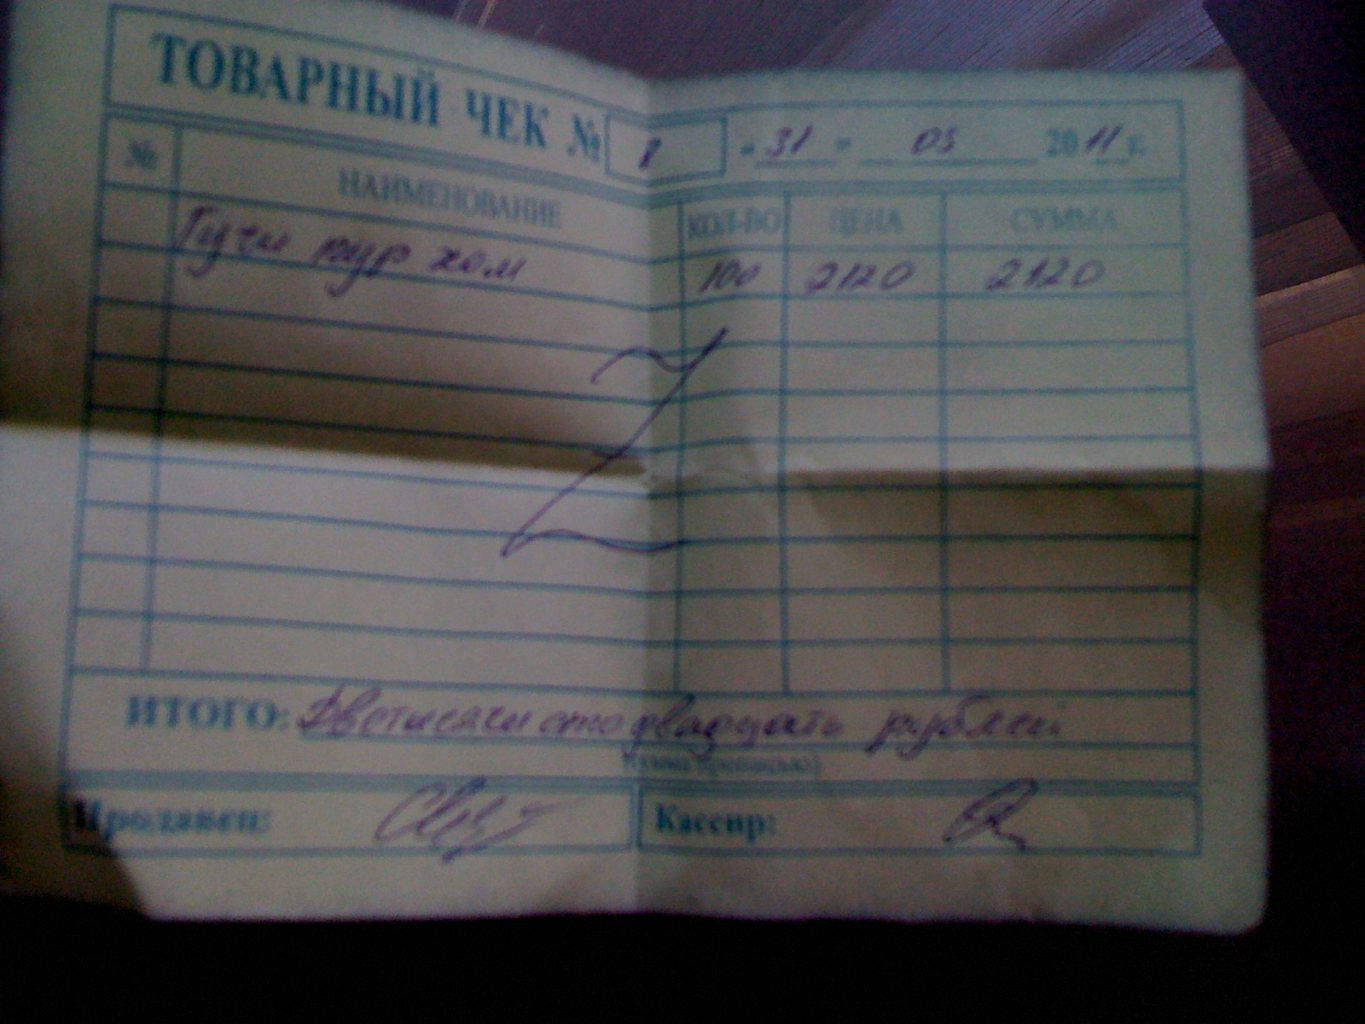 ТОВАРНЫЙ ЧЕК № 1 « 31 » 05 2011 г.
№ НАИМЕНОВАНИЕ КОЛ-ВО ЦЕНА СУММА
Гучи пур хом 100 2120 2120
ИТОГО: Две тысячи сто двадцать рублей
(сумма прописью)
Продавец: Кассир: